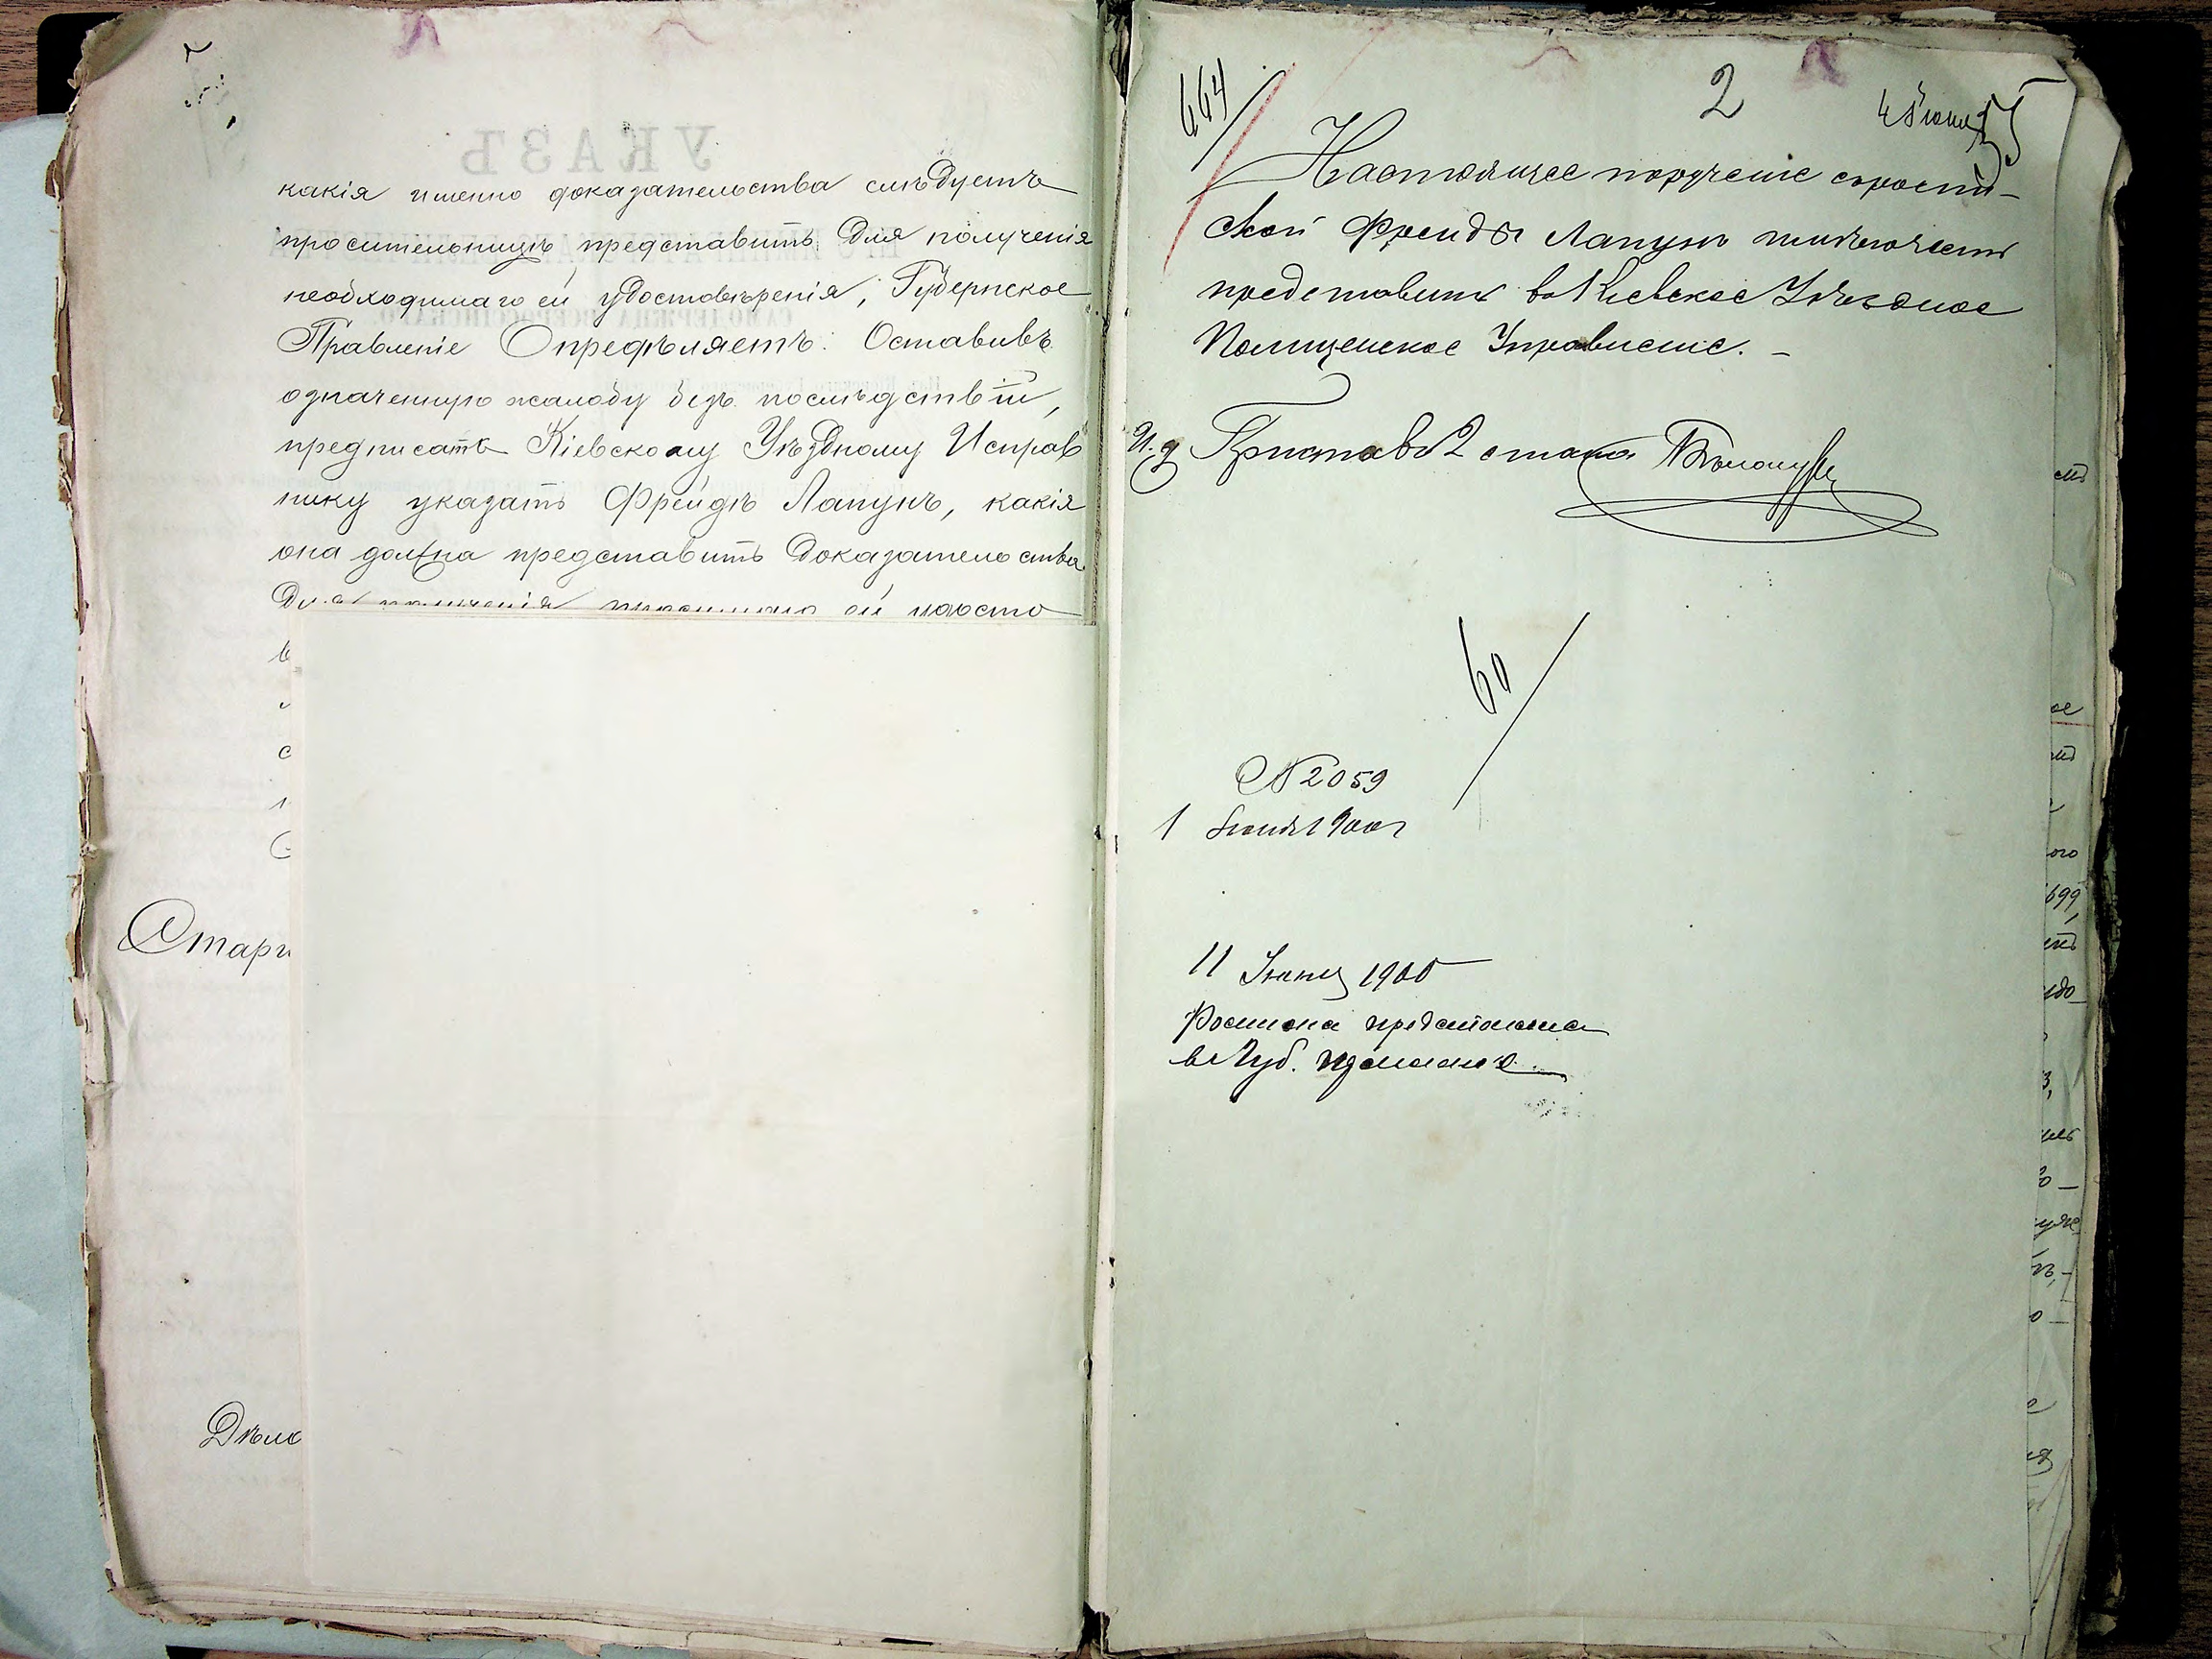 какія именно доказательства слѣдуетъ
просительницѣ представить для полученія
необходимаго ей удостовѣренія, Губернское
Правленіе Опредѣляетъ: Оставивъ
означенную жалобу безъ послѣдствій,
предписать Кіевскому Уѣздному Исправ
нику указать Фрейдѣ Лапунъ, какія
она должна представить доказательства
для полученія просимаго ей
Стар
Дѣло
664
2
4 Іюня
Настоящее порученіе съ
ской Фрейды Лапунъ
представить въ Кіевское Уѣздное
Полицейское Управленіе. –
И. д Пристава 2 стана
60
N 2059
1 Іюня 1900 г
11 Іюня 1900
Росписка представлена
въ Губ. Правленіе